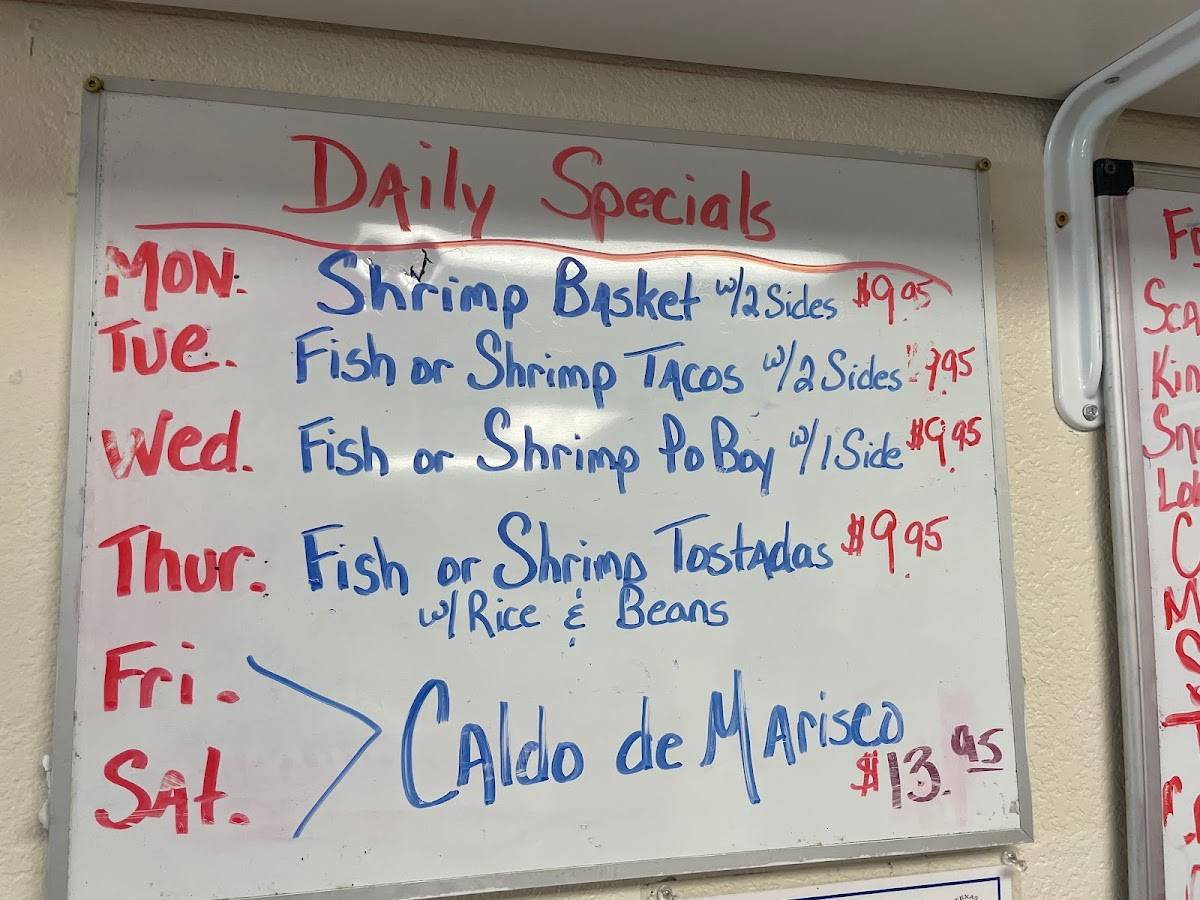 Daily Specials
Mon. Shrimp Basket w/2 Sides $9.95
Tue. Fish or Shrimp Tacos w/2 Sides
Wed. Fish or Shrimp Po Boy w/1 Side $9.95
Thur. Fish or Shrimp Tostadas $9.95
w/Rice & Beans
Fri.
Caldo de Marisco
Sat. $13.95